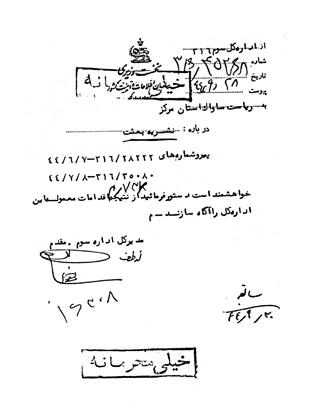 از اداره کل سوم ۳۱۶
نخست وزیری
شماره
تاریخ
پیوست
خیلی محرمانه
به ریاست ساواک استان مرکز
در باره : نشریه بعثت
پیرو شماره‌های ۳۱۶/۲۸۲۲۲ - ۴۴/۶/۷
۳۱۶/۳۰۰۸۰ - ۴۴/۷/۸
خواهشمند است دستور فرمائید از نتیجه اقدامات معموله این
اداره کل را آگاه سازند - م
مدیر کل اداره سوم . مقدم
سابقه
۴۴/۹/۲۰
خیلی محرمانه